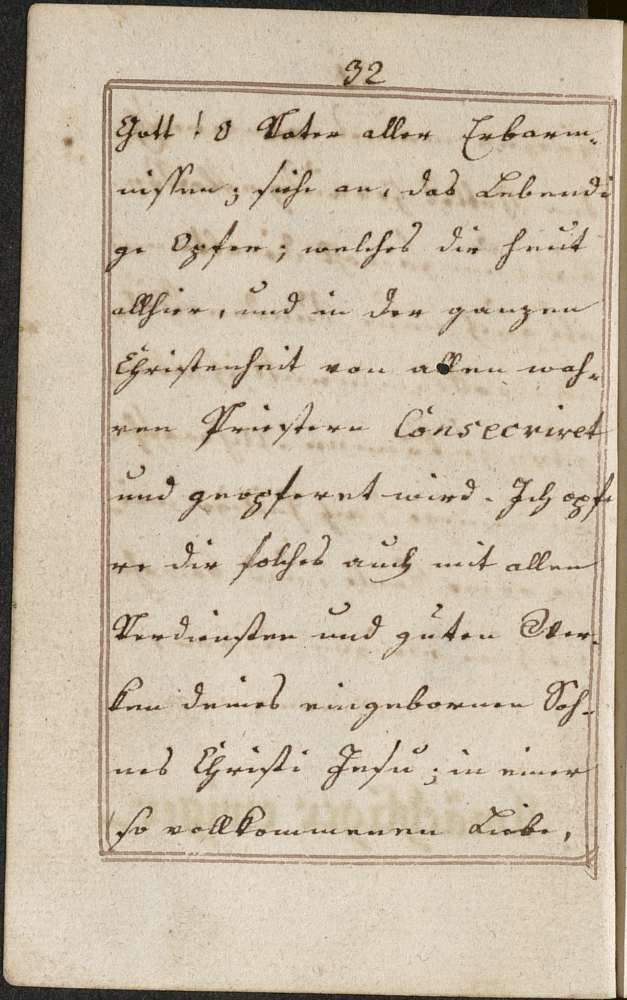 32
Gott! O Vater aller Erbarm-
nissen; siehe an, das Lebendi
ge Opfer; welches dir heut
allhier, und in der ganzen
Christenheit von allen wah-
ren Priestern Consecriret
und geopferet wird. Ich opfe
re dir solches auch mit allen
Verdiensten und guten Wer-
ken deines eingebornen Soh-
nes Christi Jesu; in einer
so vollkommenen Liebe,